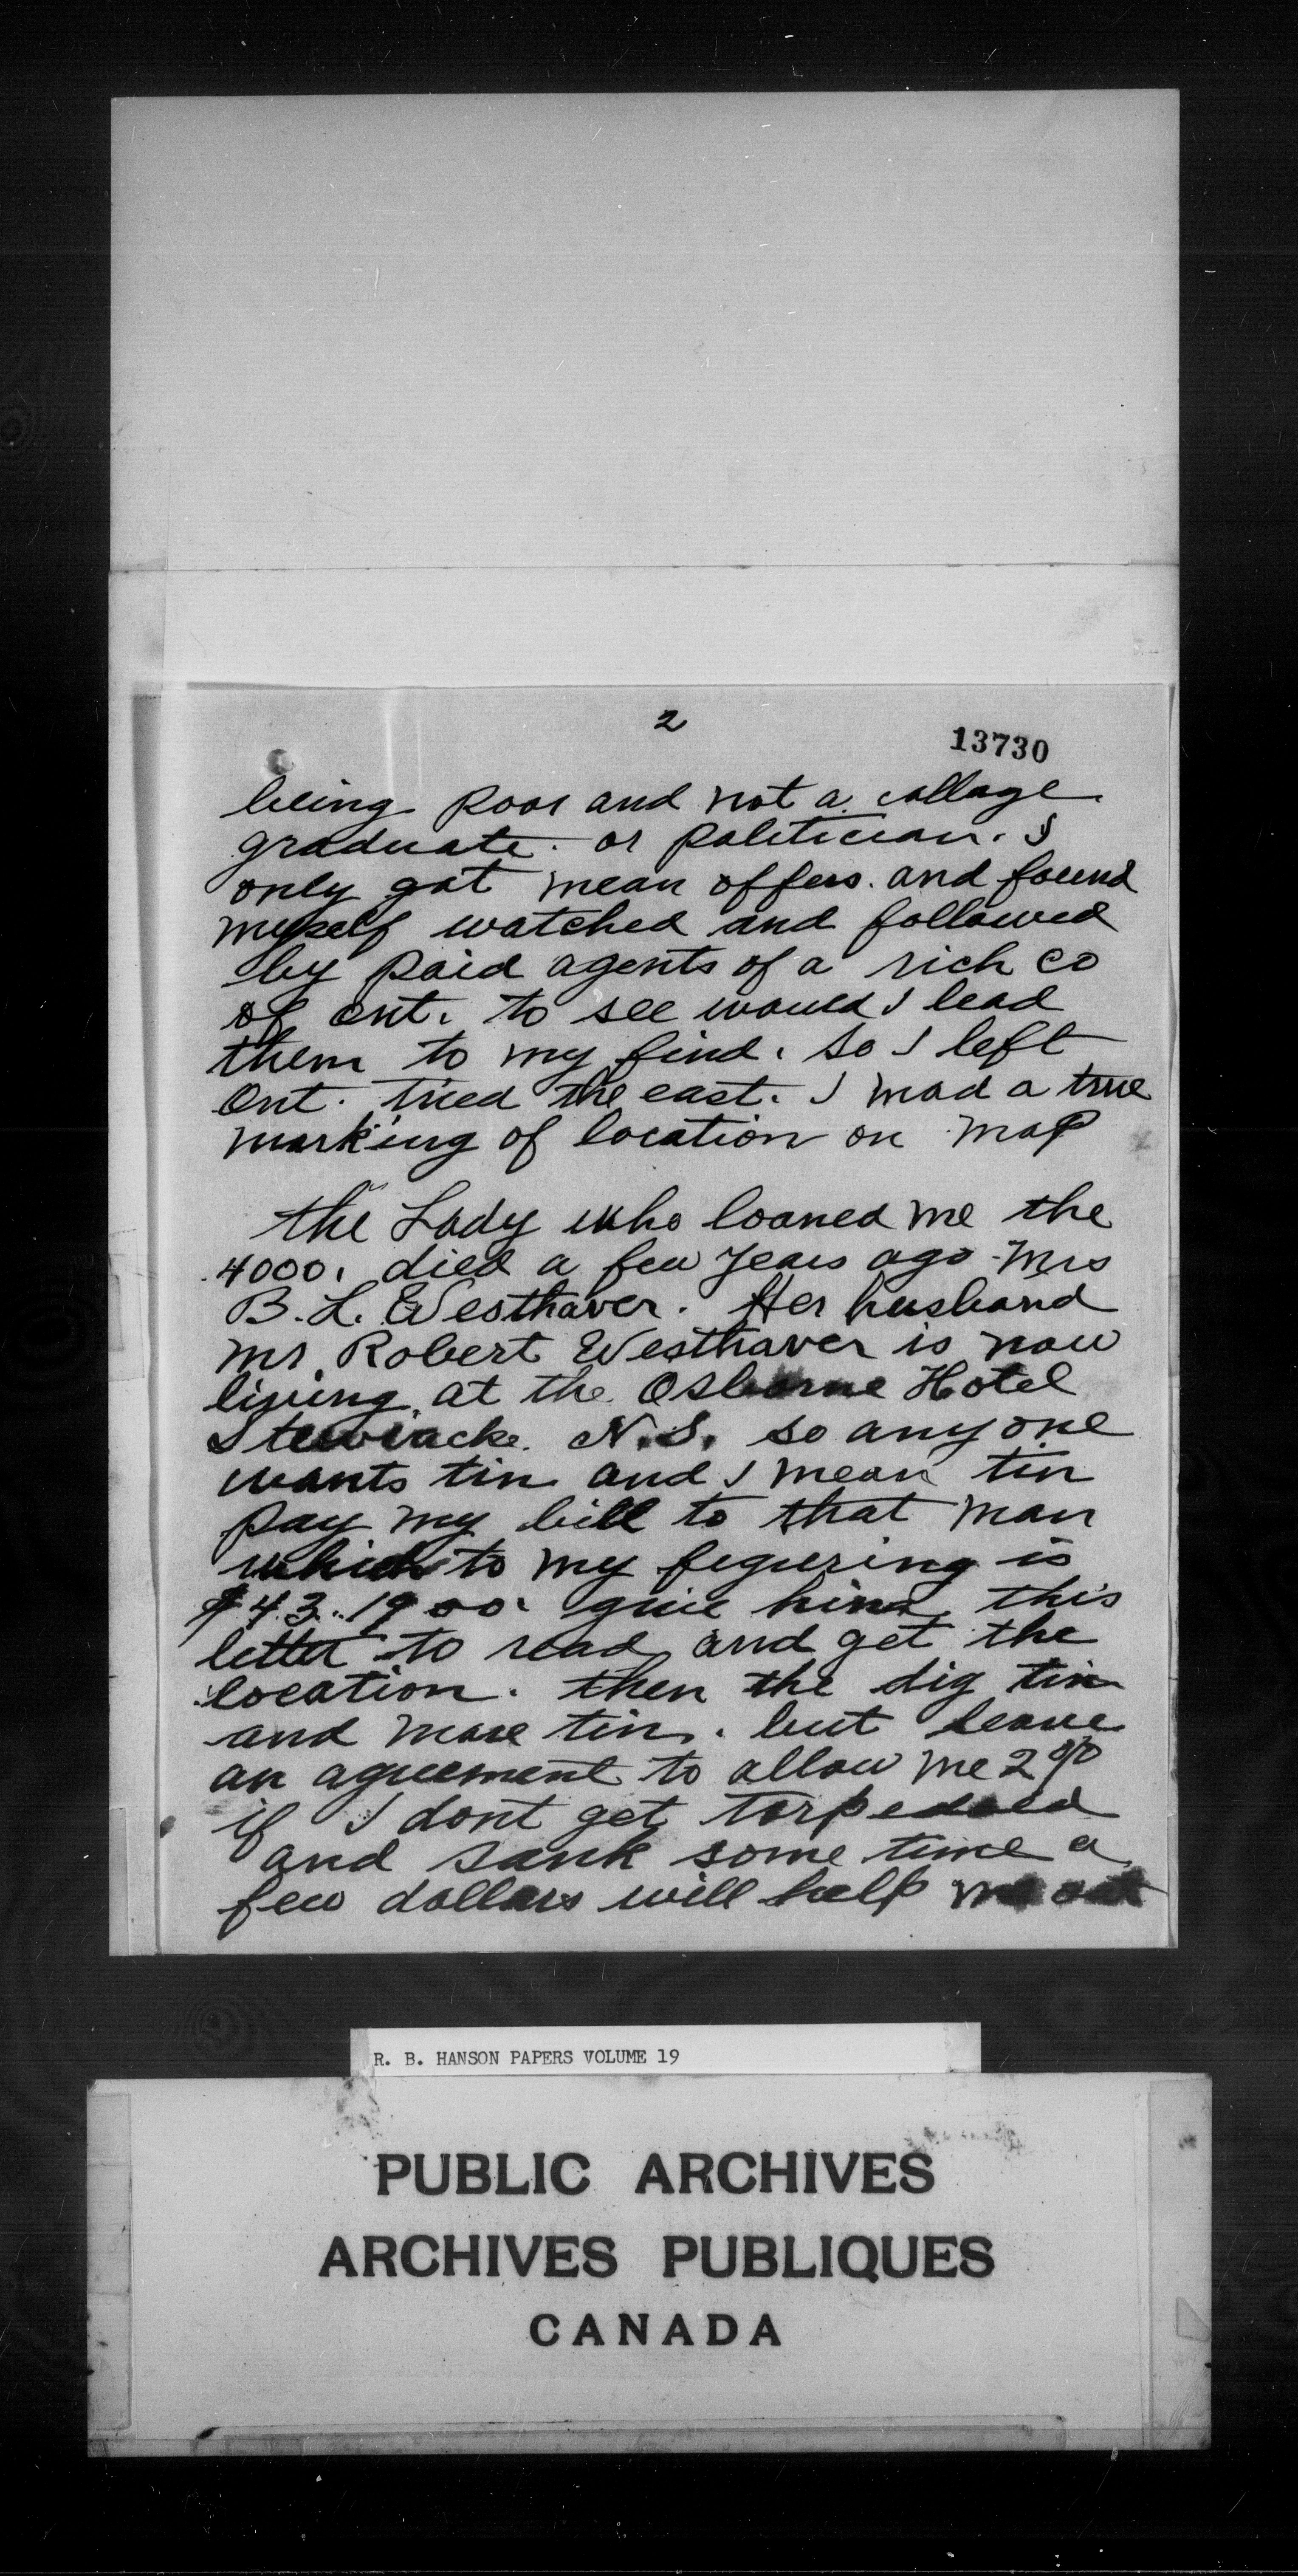 2
13730
being poor and not a collage
graduate. or politician. I
only got mean offers. and found
myself watched and followed
by paid agents of a rich co
of ont. to see would I lead
them to my find. So I left
Ont. tried the east. I mad a true
marking of location on map
the Lady who loaned me the
4000. died a few years ago Mrs
B. L. Westhaver. Her husband
Mr Robert Westhaver is now
living at the Osborne Hotel
Stewiacke. N.S. so anyone
wants tin and I mean tin
pay my bill to that man
which to my figuring is
$43..1900. give him this
letter to read and get the
location. then the dig tin
and more tin. but leave
an agreement to allow me 2 %
if I dont get torpedoed
and sank some time a
few dollars will help me out
R. B. HANSON PAPERS VOLUME 19
PUBLIC ARCHIVES
ARCHIVES PUBLIQUES
CANADA